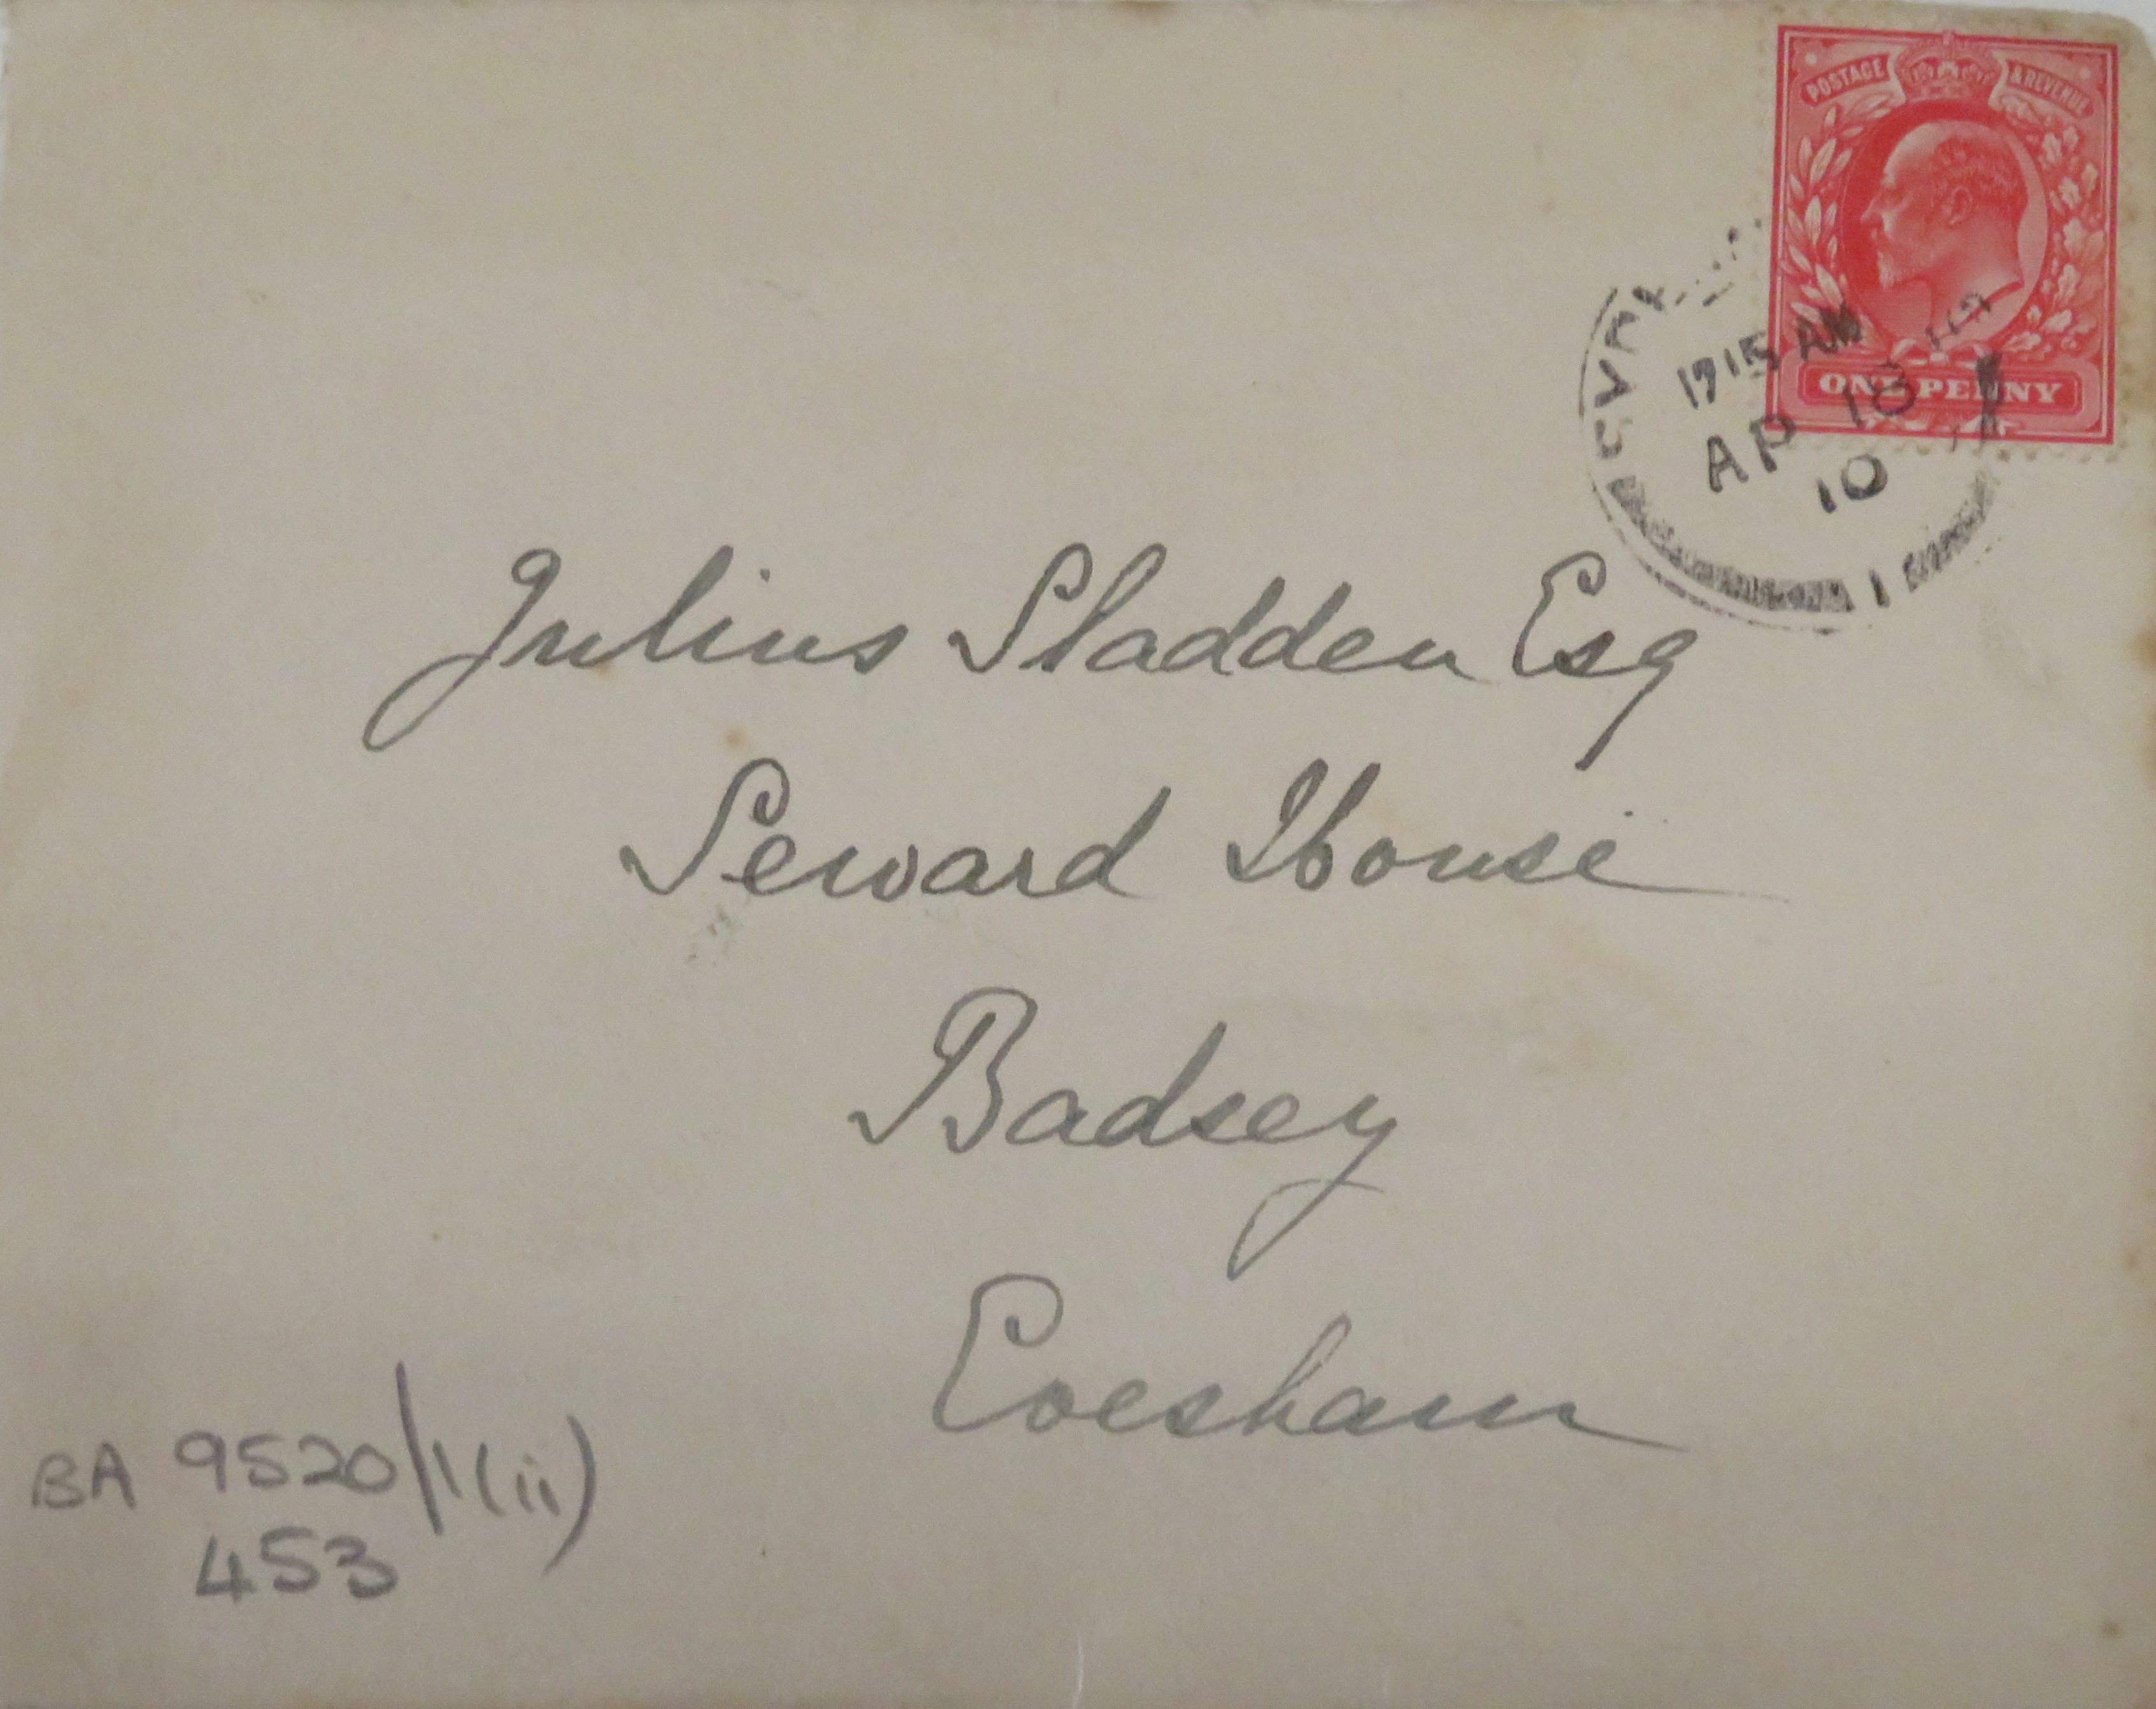 POSTAGE & REVENUE
ONE PENNY
AM
AP 18
10
Julius Sladden Esq
Seward House
Badsey
Evesham
BA 9520/1(ii)
453